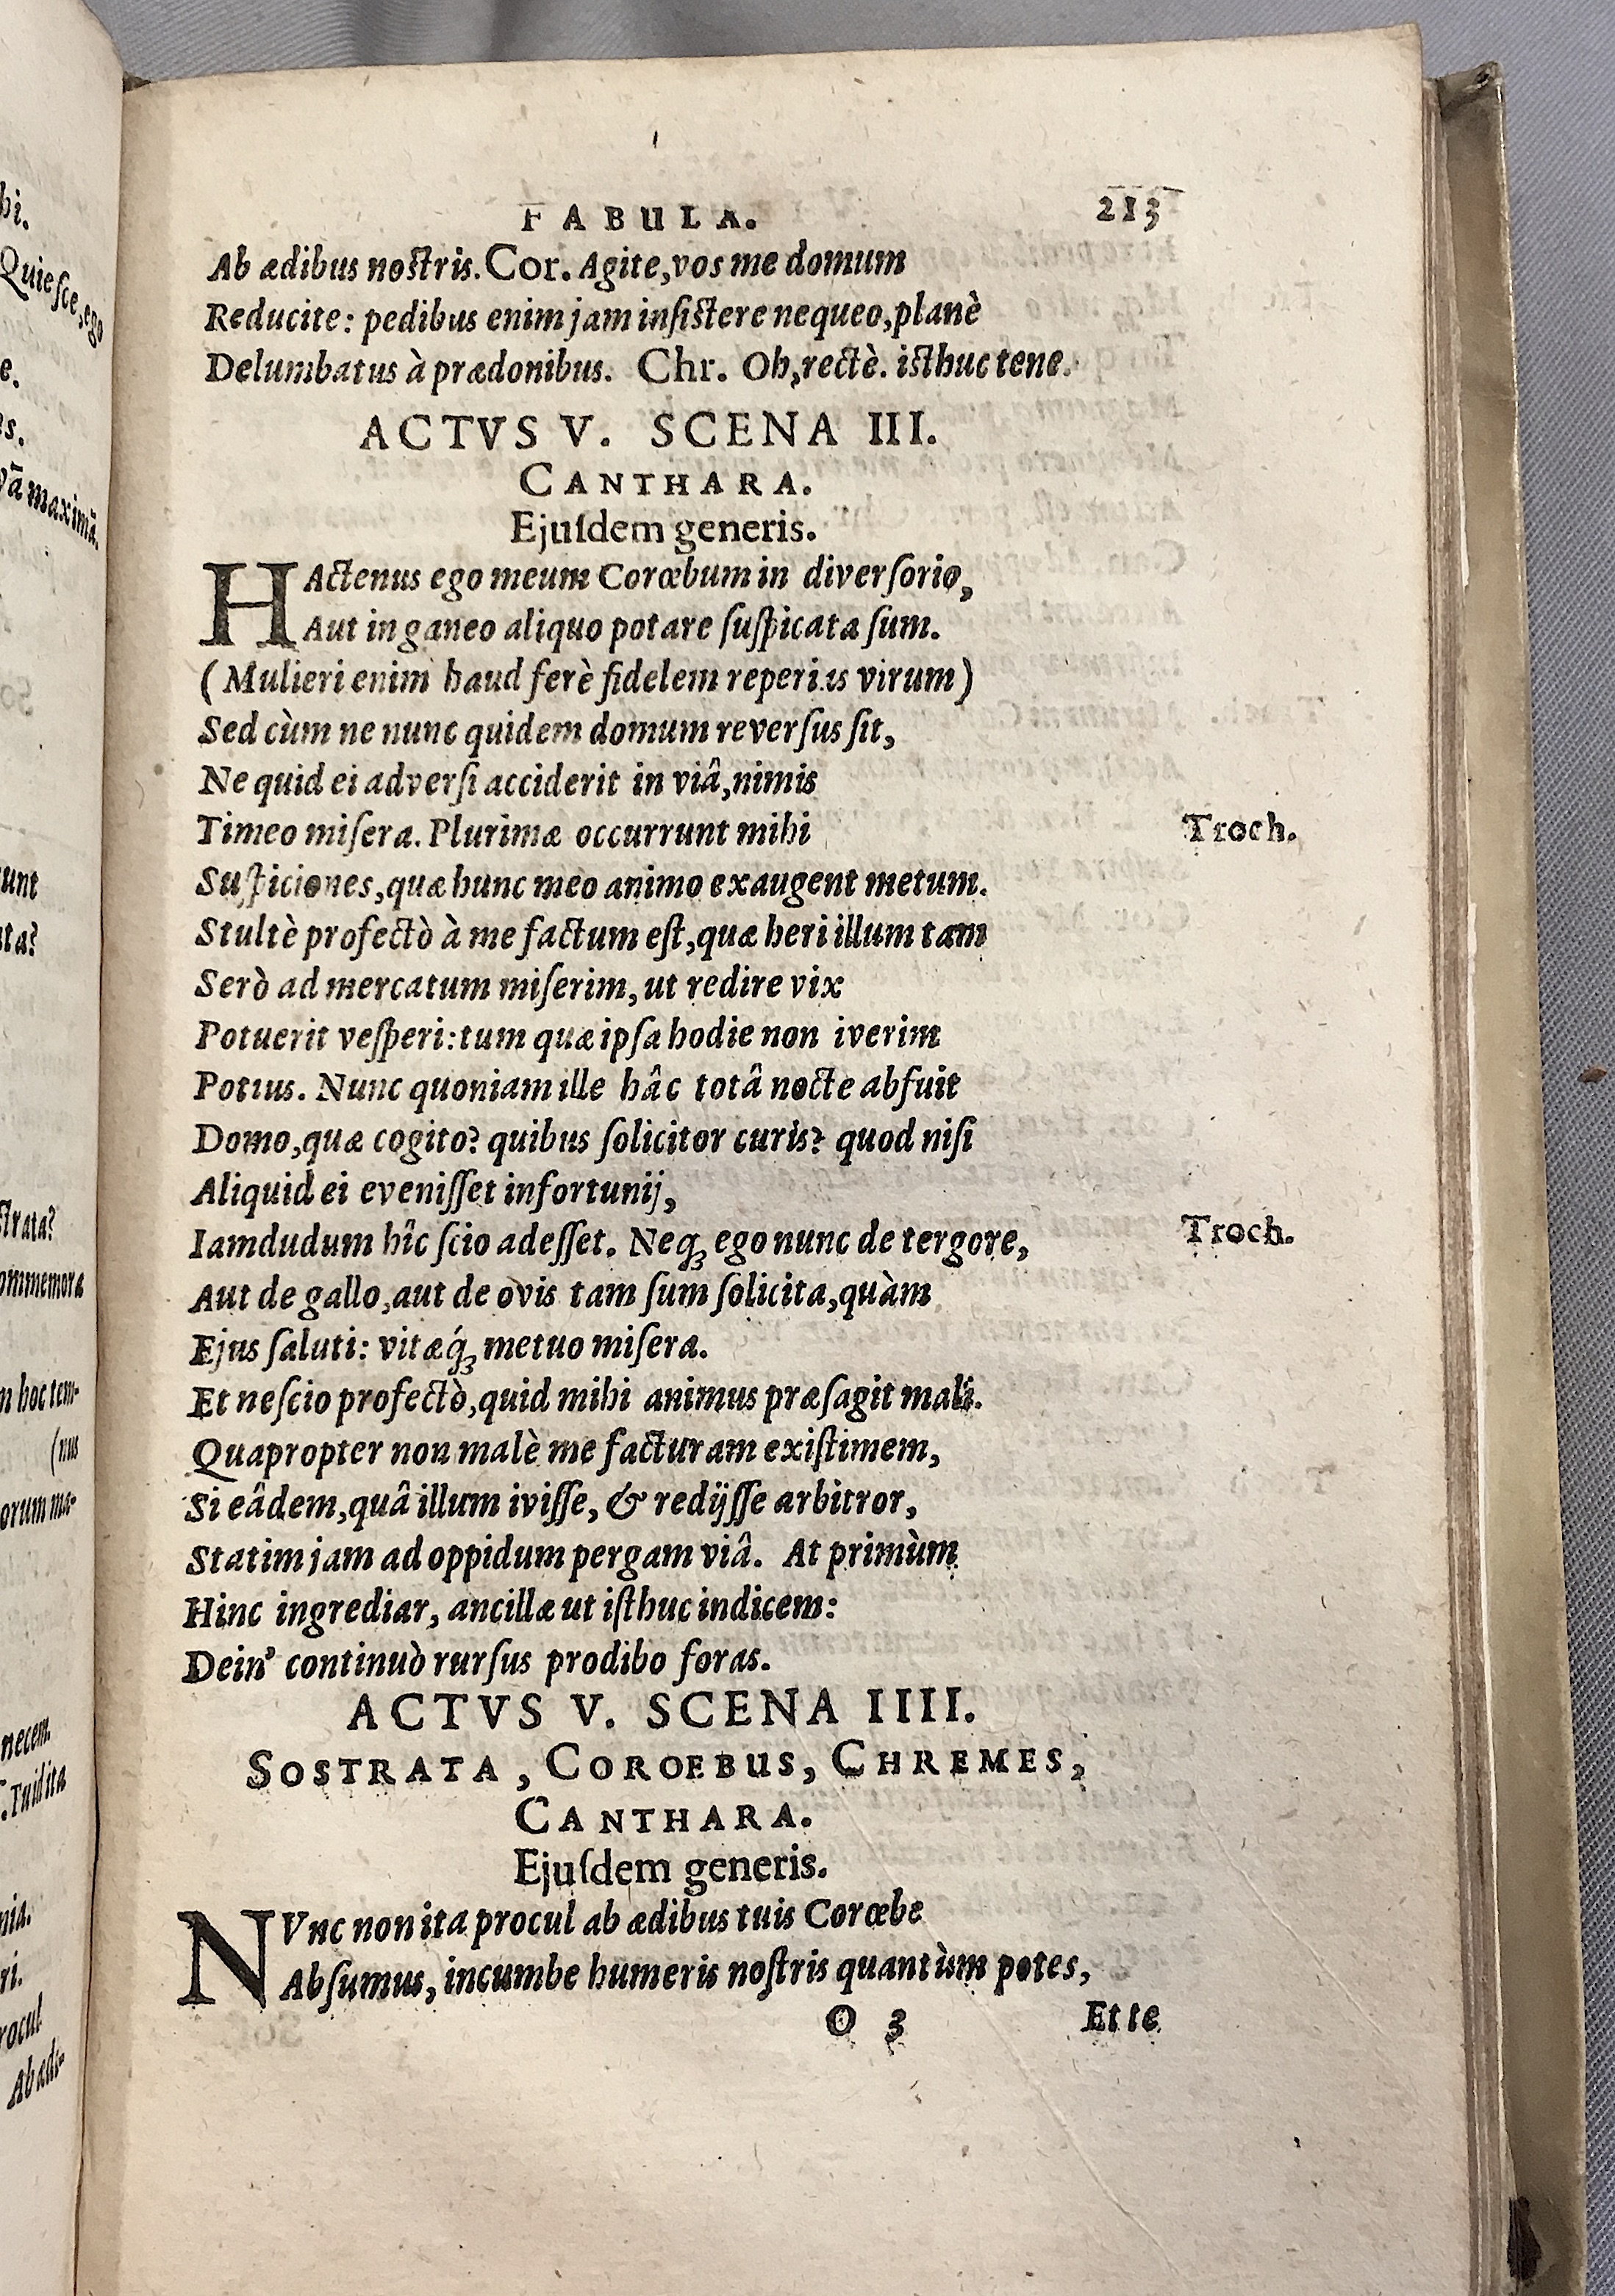 bi.
Quiesce, ego
e.
es.
vā maximā.
unt
ta?
strata?
ommemora
n hoc tem-
(nus
orum ma-
necem.
. Tuidita
nia.
ri.
rocul
Ab ædi-
FABULA. 213
Ab ædibus nostris. Cor. Agite, vos me domum
Reducite: pedibus enim jam insistere nequeo, planè
Delumbatus à prædonibus. Chr. Oh, rectè. isthuc tene.
ACTVS V. SCENA III.
CANTHARA.
Ejuſdem generis.
HActenus ego meum Corœbum in diverſorio,
Aut in ganeo aliquo potare ſuſpicata ſum.
(Mulieri enim haud ferè fidelem reperias virum)
Sed cùm ne nunc quidem domum reverſus ſit,
Ne quid ei adverſi acciderit in viâ, nimis
Timeo miſera. Plurimæ occurrunt mihi Troch.
Suſpiciones, quæ hunc meo animo exaugent metum.
Stultè profectò à me factum eſt, quæ heri illum tam
Serò ad mercatum miſerim, ut redire vix
Potuerit veſperi: tum quæ ipſa hodie non iverim
Potius. Nunc quoniam ille hâc totâ nocte abfuit
Domo, quæ cogito? quibus ſolicitor curis? quod niſi
Aliquid ei eveniſſet infortunij,
Iamdudum hîc ſcio adeſſet. Neq; ego nunc de tergore, Troch.
Aut de gallo, aut de ovis tam ſum ſolicita, quàm
Ejus ſaluti: vitæq́; metuo miſera.
Et neſcio profectò, quid mihi animus præſagit mali.
Quapropter non malè me facturam exiſtimem,
Si eâdem, quâ illum iviſſe, & redijſſe arbitror,
Statim jam ad oppidum pergam viâ. At primùm
Hinc ingrediar, ancillæ ut iſthuc indicem:
Dein' continuò rurſus prodibo foras.
ACTVS V. SCENA IIII.
SOSTRATA, COROEBUS, CHREMES,
CANTHARA.
Ejuſdem generis.
NVnc non ita procul ab ædibus tuis Corœbe
Abſumus, incumbe humeris noſtris quantùm potes,
O 3 Et te